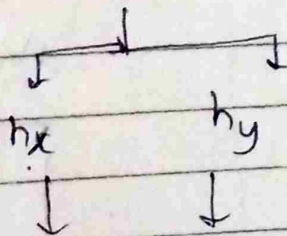 hx hy